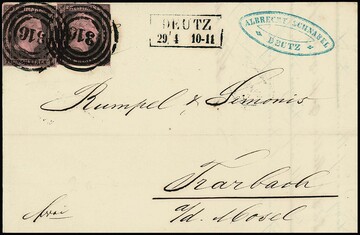 316
316
DEUTZ
29/4 10-11
ALBRECHT SCHNABEL
DEUTZ
Rumpel & Simonis
Trarbach
a/d. Mosel
frei